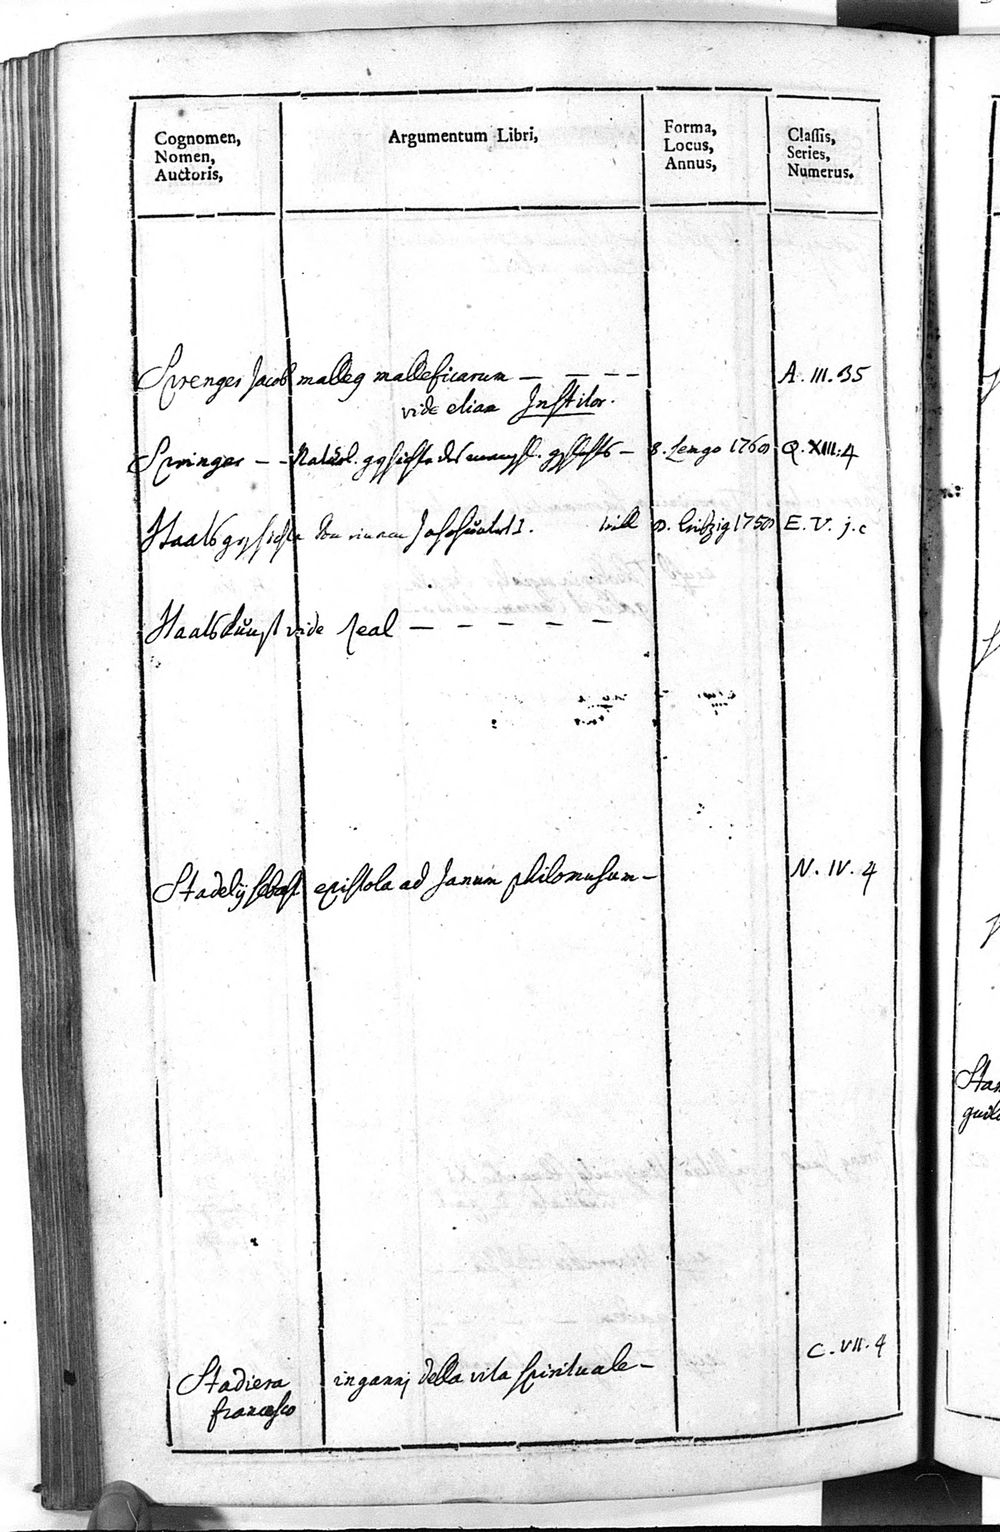 Cognomen,
Nomen,
Auctoris,
Argumentum Libri,
Forma,
Locus,
Annus,
Classis,
Series,
Numerus.
Sprenger Jacob malleg malleficarum – – – – A. III. 35
vide etiam Institor.
Springer – – Natürl. gschichte des mensch. gschlechts – 8. Lemgo 1760 Q. XIII. 4
Staatsgeschichte von Joseph I. 8. Leibzig 1750 E. V. j. c
Staatskunst vide real – – – – –
Stadelij Sebast epistola ad Janum philomusum – N. IV. 4
Stadiera inganni della vita spirituale – C. VII. 4
francesco
Stan